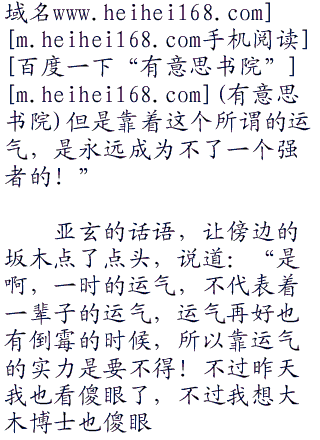 域名www.heihei168.com]
[m.heihei168.com手机阅读]
[百度一下“有意思书院”]
[m.heihei168.com](有意思
书院)但是靠着这个所谓的运
气，是永远成为不了一个强
者的！”
亚玄的话语，让傍边的
坂木点了点头，说道：“是
啊，一时的运气，不代表着
一辈子的运气，运气再好也
有倒霉的时候，所以靠运气
的实力是要不得！不过昨天
我也看傻眼了，不过我想大
木博士也傻眼